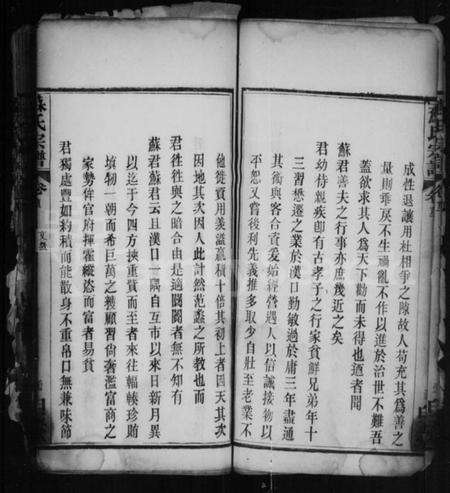 成性退讓用杜相爭之隙故人苟充其為善之
量則乖戾不生禍亂不作以進於治世不難吾
蓋欲求其人為天下勸而未得也廼者聞
蘇君善夫之行事亦庶幾近之矣
君幼侍親疾即有古孝子之行家貧鮮兄弟年十
三習懋遷之業於漢口勤敏過於庸三年盡通
其術與客合貲爰始經營遇人以信誠接物以
平恕又嘗後利先義推多取少自壯至老業不
他徙貲用羨溢贏積十倍其初上者因天其次
因地其次因人此計然范蠡之所教也而
君往往與之暗合由是適闠闤者無不知有
蘇君蘇君云且漢口一隅自互市以來日新月異
以迄于今四方挾重貲而至者來往輻輳珍賂
填牣一朝而希巨萬之獲顧習尚奢濫富商之
家勢侔官府揮霍縱恣而富者易貧
君獨處豐如約積而能散身不重帛口無兼味節
蘇氏宗譜 卷首
氏宗譜